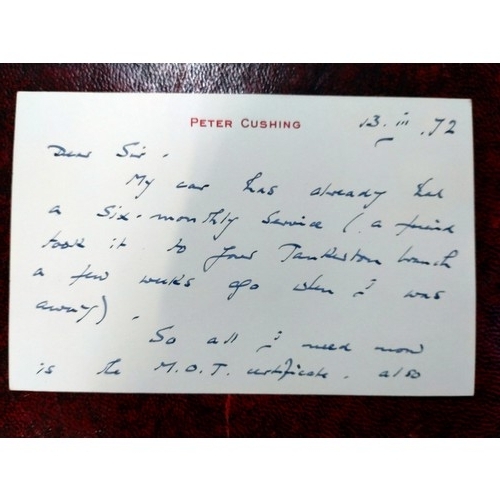 PETER CUSHING
13. iii. 72
Dear Sir.
My car has already had
a six-monthly service (a friend
took it to your Tankerton branch
a few weeks ago when I was
away).
So all I need now
is the M.O.T. certificate. also